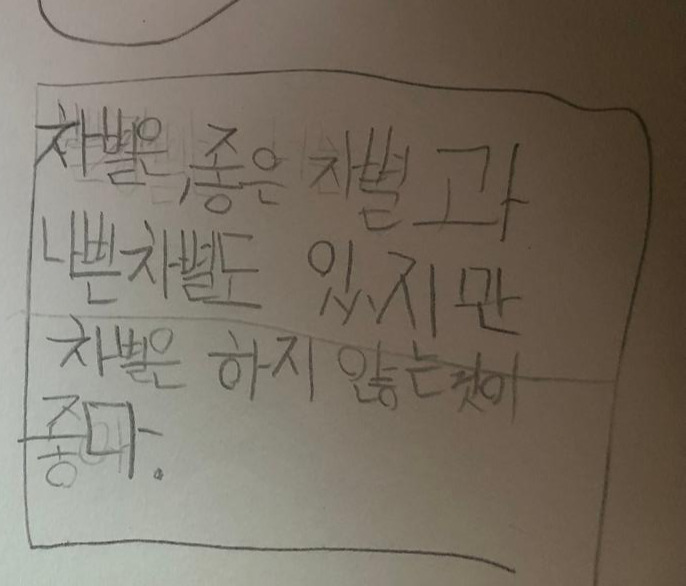 차별은, 좋은 차별 과
나쁜차별도 있지만
차별은 하지 않는것이
좋다.